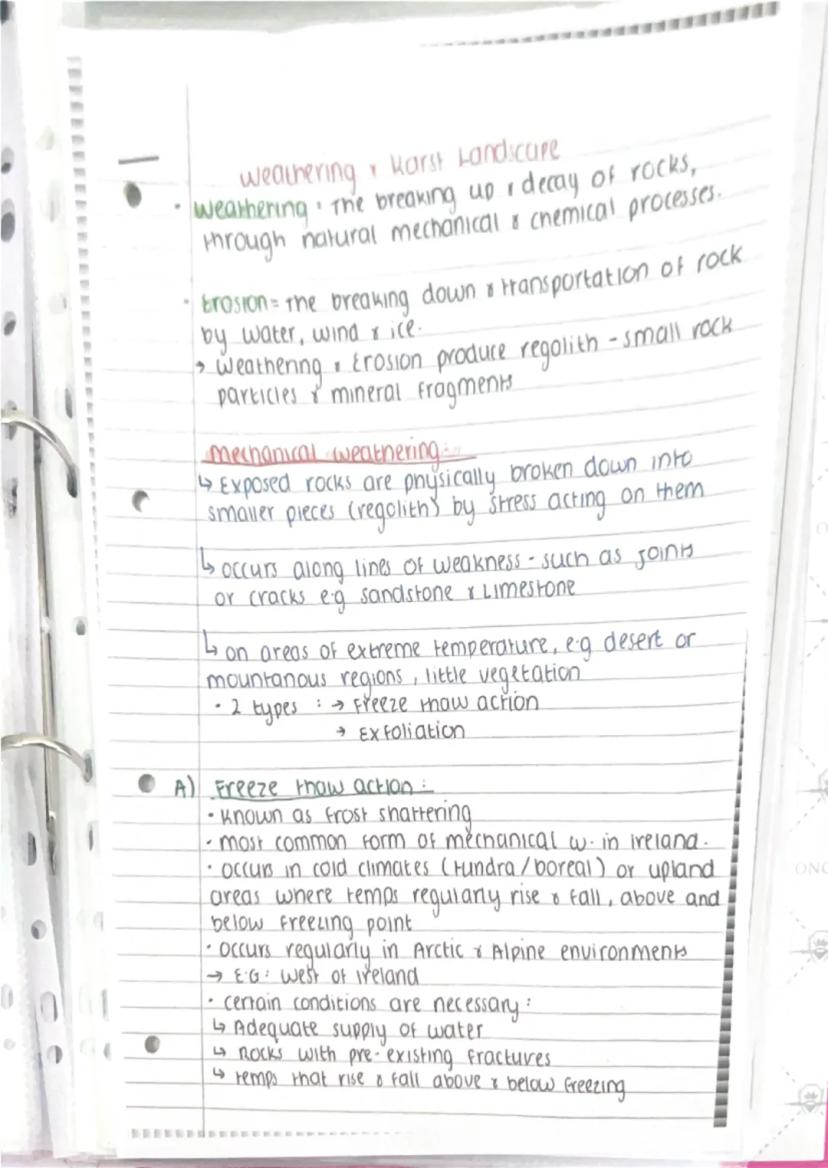 Weathering & Karst Landscape
• Weathering: The breaking up & decay of rocks,
through natural mechanical & chemical processes.
• Erosion = The breaking down & transportation of rock
by water, wind & ice.
→ Weathering & Erosion produce regolith - small rock
particles & mineral fragments
Mechanical weathering:
↳ Exposed rocks are physically broken down into
smaller pieces (regolith) by stress acting on them
↳ occurs along lines of weakness - such as joints
or cracks e.g sandstone & Limestone
↳ on areas of extreme temperature, e.g desert or
mountanous regions, little vegetation
• 2 types : → Freeze thaw action
→ Exfoliation
A) Freeze thaw action:
• Known as frost shattering
• most common form of mechanical w. in Ireland.
• occurs in cold climates (tundra/boreal) or upland
areas where temps regularly rise & fall, above and
below freezing point
• occurs regularly in Arctic & Alpine environments
→ E.G: West of Ireland
• certain conditions are necessary:
↳ Adequate supply of water
↳ Rocks with pre-existing fractures
↳ temps that rise & fall above & below freezing